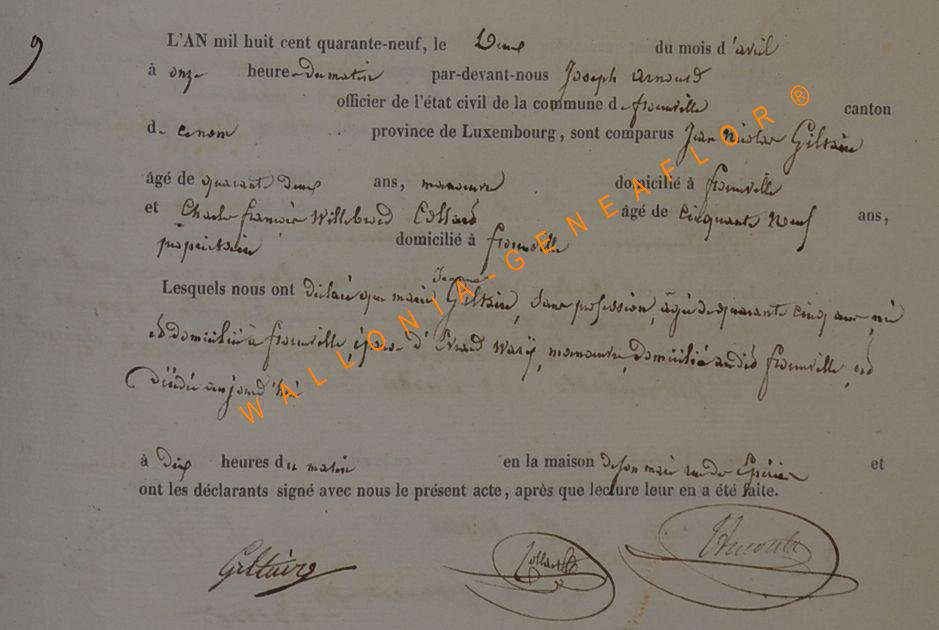 9
L'AN mil huit cent quarante-neuf, le Deux du mois d'avril
à onze heure du matin par-devant-nous Joseph Arnould
officier de l'état civil de la commune de froidville canton
de province de Luxembourg, sont comparus Jean Nicolas Giltaire
âgé de quarante deux ans, manœuvre domicilié à
et Charle francois Willebrord Collard âgé de Cinquante Neuf ans,
propriétaire domicilié à
Lesquels nous ont déclaré que marie Jeanne Giltaire, sans profession, âgée de quarante cinq ans, née
et domiciliée à épouse d'Evrard manœuvre, domicilié audit est
Décédée aujourd'hui
à dix heures du matin en la maison de son mari rue et
ont les déclarants signé avec nous le présent acte, après que lecture leur en a été faite.
Giltaire Collard
WALLONIA-GENEAFLOR ®